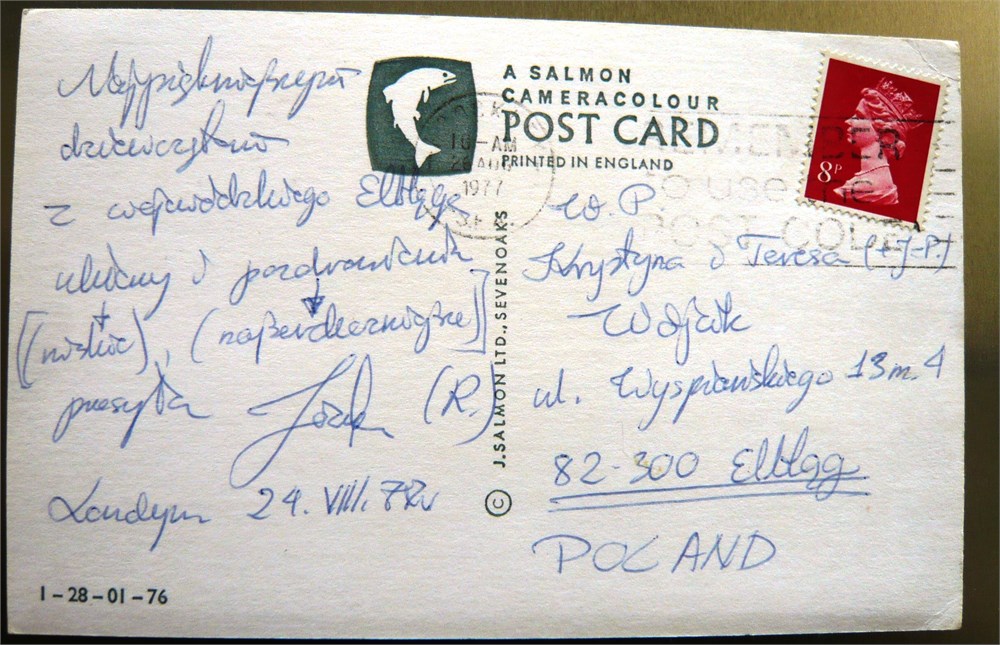 Najpiękniejszym
dziewczętom
z wojewódzkiego Elbląga
ukłony i pozdrowienia
[(niskie), (najserdeczniejsze)]
przesyła Józek (R.)
Londyn 24. VIII. 77r
1-28-01-76
A SALMON
CAMERACOLOUR
POST CARD
PRINTED IN ENGLAND
10-AM
1977
REMEMBER
to use the
POST CODE
8P
© J. SALMON LTD., SEVENOAKS
W. P.
Krystyna i Teresa (+J-P.)
Wójcik
ul. Wyspiańskiego 13 m. 4
82-300 Elbląg
POLAND